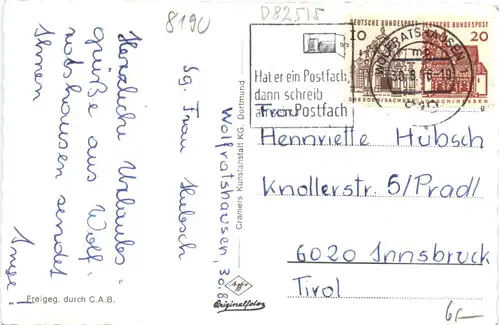 8190
D82515
Wolfratshausen, 30.8
Sg. Frau Hubsch
Herzliche Urlaubs=
grüße aus Wolf=
ratshausen sendet
Ihnen
Freigeg. durch C.A.B.
Cramers Kunstanstalt KG, Dortmund
Agfa
Originalfoto
DEUTSCHE BUNDESPOST
10
DRESDEN/SACHSEN
DEUTSCHE BUNDESPOST
20
HESSEN
WOLFRATSHAUSEN
Hat er ein Postfach,
dann schreib
Postfach
Frau
Henriette Hübsch
Knollerstr. 5/Pradl
6020 Innsbruck
Tirol